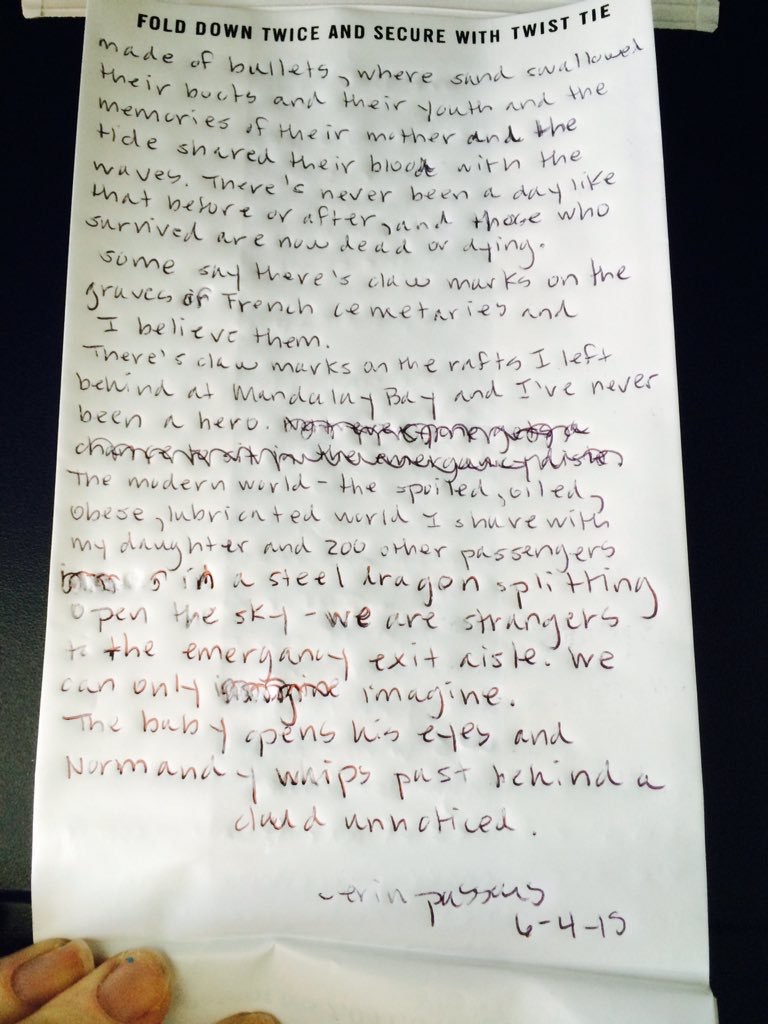 FOLD DOWN TWICE AND SECURE WITH TWIST TIE
made of bullets, where sand swallowed
their boots and their youth and the
memories of their mother and the
tide shared their blood with the
waves. There's never been a day like
that before or after, and those who
survived are now dead or dying.
some say there's claw marks on the
graves of French cemetaries and
I believe them.
There's claw marks on the rafts I left
behind at Mandalay Bay and I've never
been a hero.
The modern world - the spoiled, oiled,
obese, lubricated world I share with
my daughter and 200 other passengers
in a steel dragon splitting
open the sky - we are strangers
to the emergancy exit aisle. We
can only imagine.
The baby opens his eyes and
Normandy whips past behind a
cloud unnoticed.
-erin passons
6-4-15